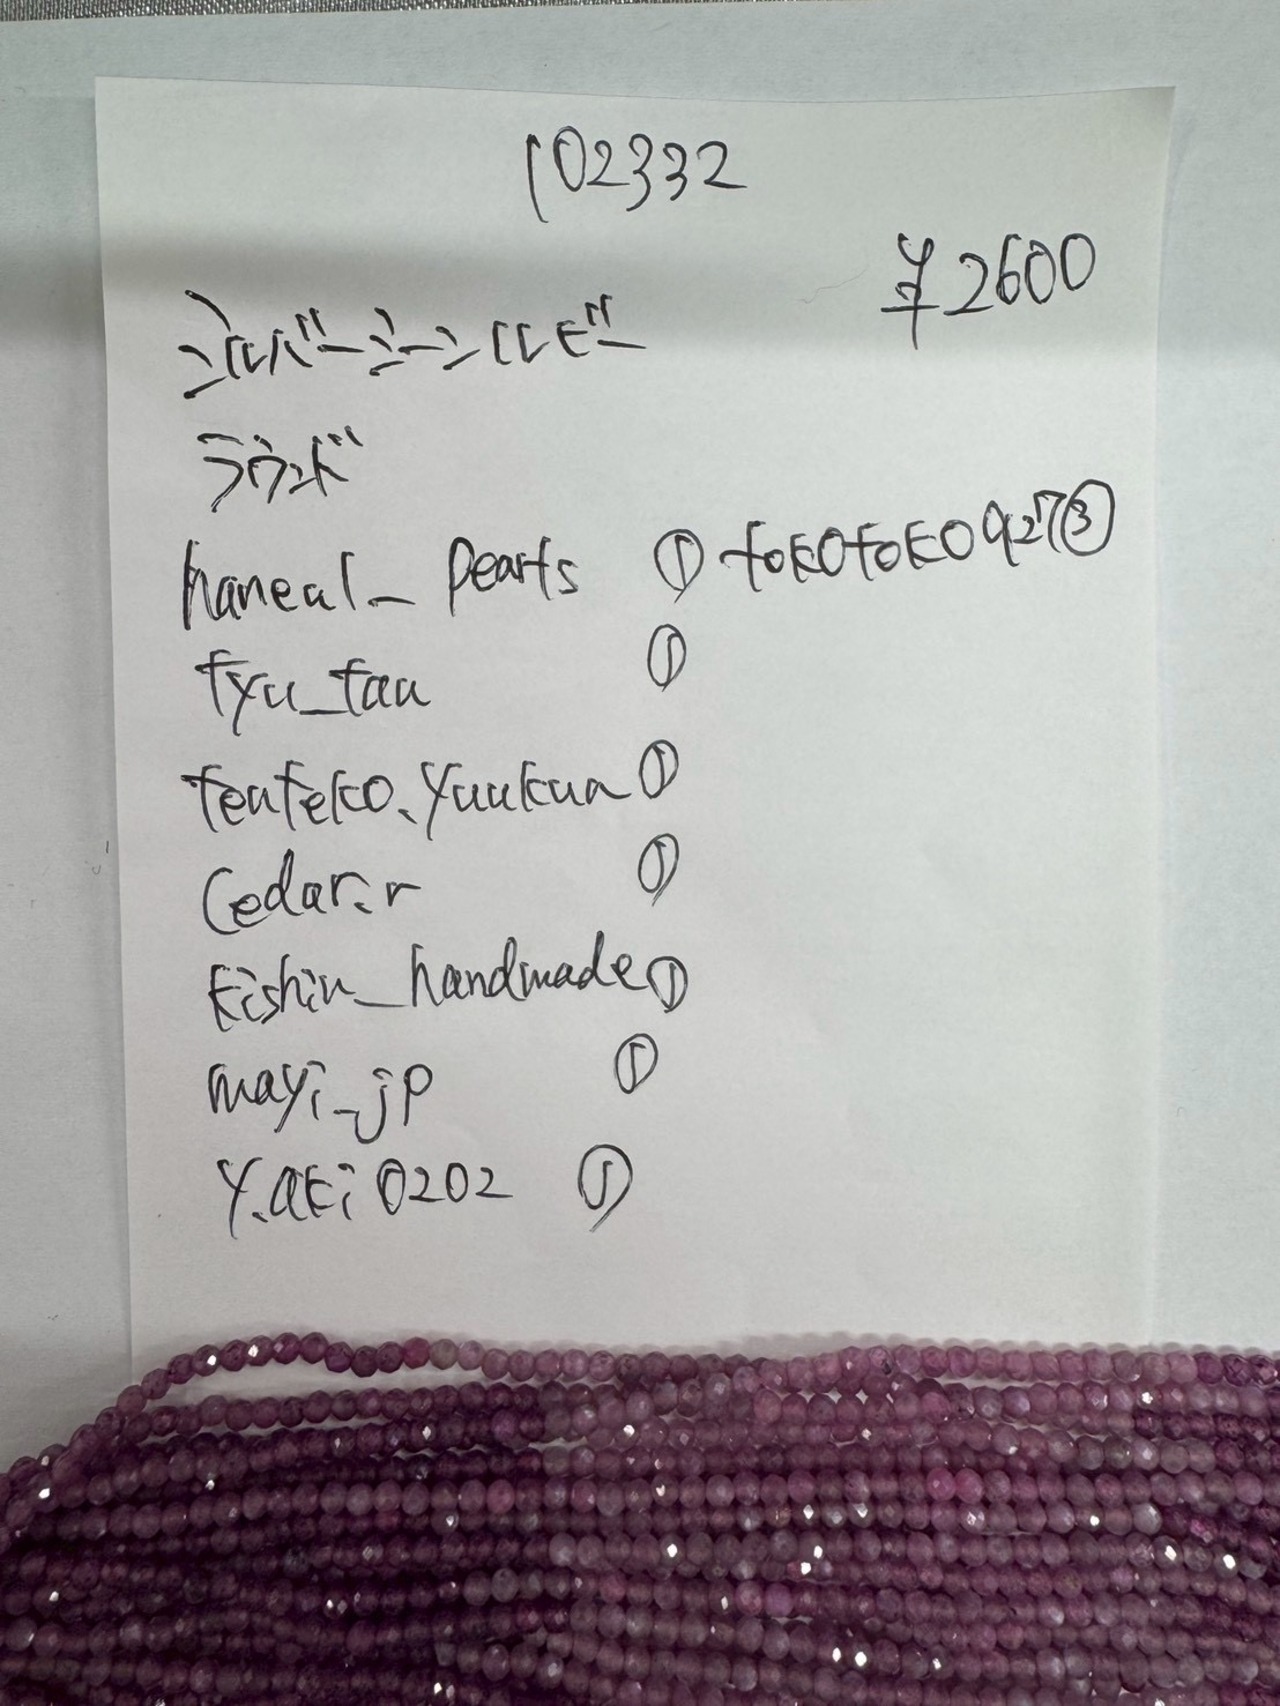 102332
¥2600
シルバーシーンルビー
ラウンド
haneul_pearls ① tokotoko927③
tyu_tau ①
tenteko.yuukun ①
Cedar.r ①
kishin_handmade ①
mayi_jp ①
y.aki0202 ①